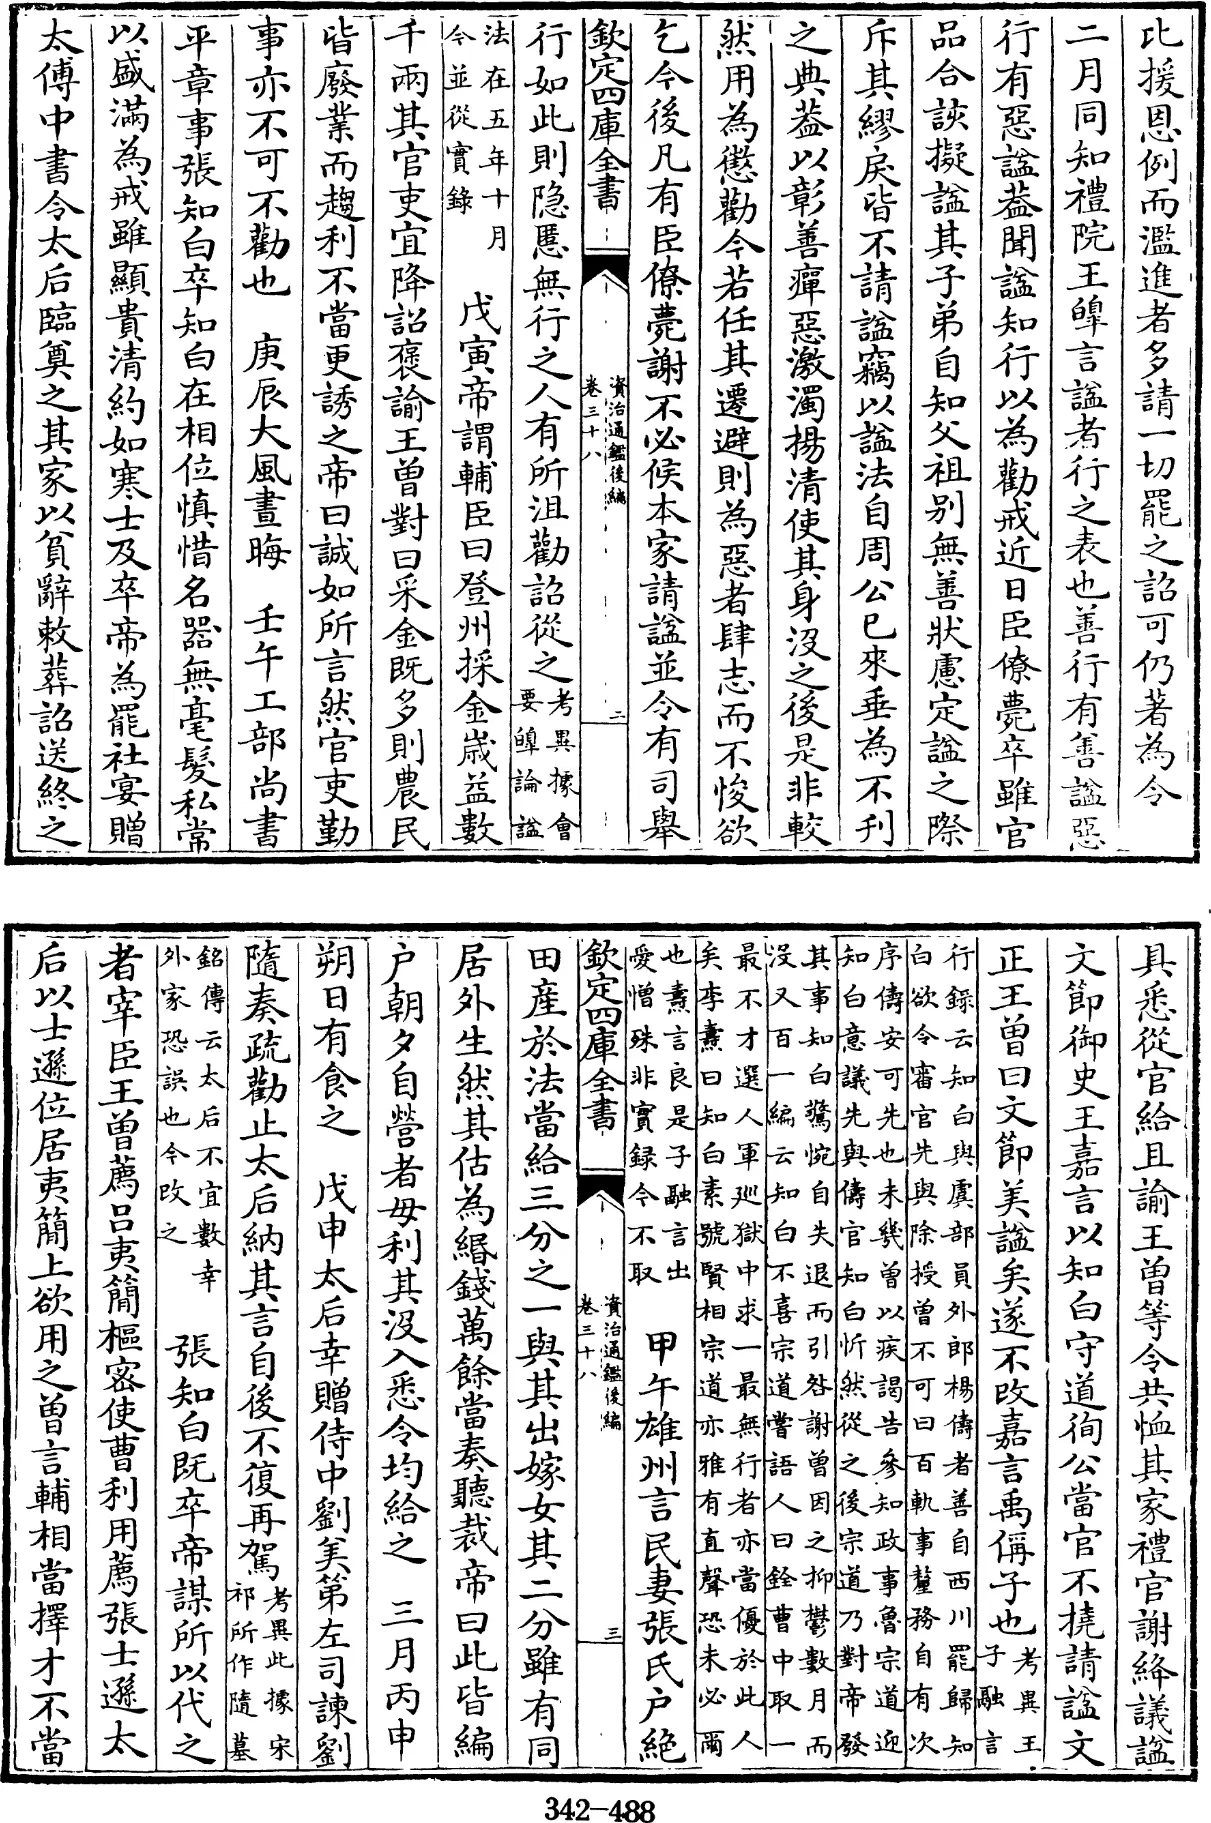 比援恩例而濫進者多請一切罷之詔可仍著為令
二月同知禮院王皥言諡者行之表也善行有善諡惡
行有惡諡葢聞諡知行以為勸戒近日臣僚薨卒雖官
品合該擬諡其子弟自知父祖别無善狀慮定諡之際
斥其繆戾皆不請諡竊以諡法自周公已來垂為不刊
之典葢以彰善癉惡激濁揚清使其身没之後是非較
然用為懲勸今若任其遷避則為惡者肆志而不悛欲
乞今後凡有臣僚薨謝不必候本家請諡並令有司舉
欽定四庫全書
資治通鑑後編
卷三十八
二
行如此則隐慝無行之人有所沮勸詔從之考異據會
要皥論諡
法在五年十月
今並從實錄
戊寅帝謂輔臣曰登州採金嵗益數
千兩其官吏宜降詔褒諭王曾對曰采金既多則農民
皆廢業而趨利不當更誘之帝曰誠如所言然官吏勤
事亦不可不勸也　庚辰大風晝晦　壬午工部尚書
平章事張知白卒知白在相位慎惜名器無毫髮私常
以盛滿為戒雖顯貴清約如寒士及卒帝為罷社宴贈
太傅中書令太后臨奠之其家以貧辭敕葬詔送終之
具悉從官給且諭王曾等令共恤其家禮官謝絳議諡
文節御史王嘉言以知白守道徇公當官不撓請諡文
正王曾曰文節美諡矣遂不改嘉言禹偁子也考異王
子融言
行錄云知白與虞部員外郎楊儔者善自西川罷歸知
白欲令審官先與除授曾不可曰百執事釐務自有次
序儔安可先也未幾曾以疾謁告參知政事魯宗道迎
知白意議先與儔官知白忻然從之後宗道乃對帝發
其事知白驚惋自失退而引咎謝曾因之抑鬱數月而
没又百一編云知白不喜宗道嘗語人曰銓曹中取一
最不才選人軍廵獄中求一最無行者亦當優於此人
矣李燾曰知白素號賢相宗道亦雅有直聲恐未必爾
也燾言良是子融言出
愛憎殊非實録今不取
甲午雄州言民妻張氏户絶
欽定四庫全書
資治通鑑後編
卷三十八
三
田産於法當給三分之一與其出嫁女其二分雖有同
居外生然其估為緡錢萬餘當奏聽裁帝曰此皆編
户朝夕自營者毋利其没入悉令均給之　三月丙申
朔日有食之　戊申太后幸贈侍中劉美第左司諫劉
隨奏疏勸止太后納其言自後不復再駕考異此據宋
祁所作隨墓
銘傳云太后不宜數幸
外家恐誤也今改之
張知白既卒帝謀所以代之
者宰臣王曾薦呂夷簡樞密使曹利用薦張士遜太
后以士遜位居夷簡上欲用之曾言輔相當擇才不當
342-488